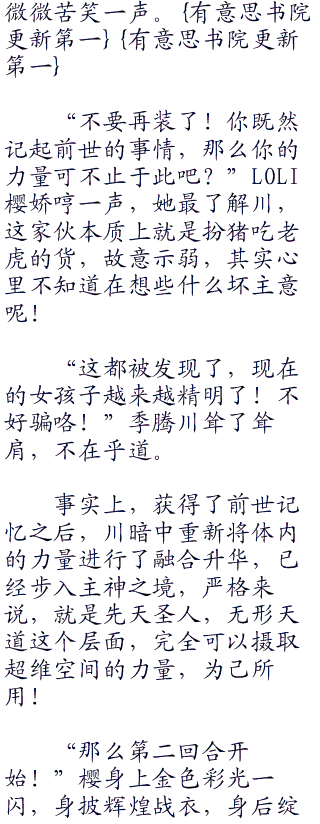 微微苦笑一声。{有意思书院
更新第一}{有意思书院更新
第一}
“不要再装了！你既然
记起前世的事情，那么你的
力量可不止于此吧？”LOLI
樱娇哼一声，她最了解川，
这家伙本质上就是扮猪吃老
虎的货，故意示弱，其实心
里不知道在想些什么坏主意
呢！
“这都被发现了，现在
的女孩子越来越精明了！不
好骗咯！”季腾川耸了耸
肩，不在乎道。
事实上，获得了前世记
忆之后，川暗中重新将体内
的力量进行了融合升华，已
经步入主神之境，严格来
说，就是先天圣人，无形天
道这个层面，完全可以摄取
超维空间的力量，为己所
用！
“那么第二回合开
始！”樱身上金色彩光一
闪，身披辉煌战衣，身后绽